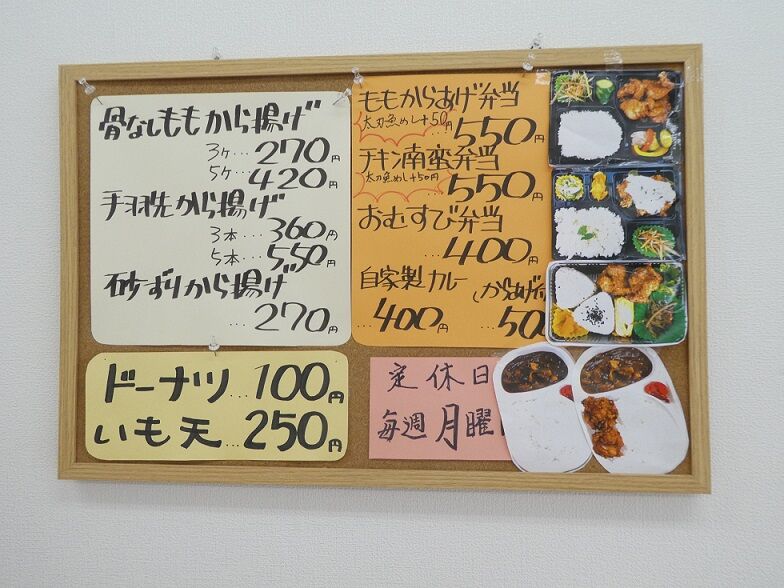 骨なしももから揚げ
3ケ…270円
5ケ…420円
手羽先から揚げ
3本…360円
5本…550円
砂ずりから揚げ
…270円
ももからあげ弁当
太刀魚めし+50円
…550円
チキン南蛮弁当
太刀魚めし+50円
…550円
おむすび弁当
…400円
自家製カレー
…400円
からあげ付
…500
ドーナツ…100円
いも天…250円
定休日
毎週月曜